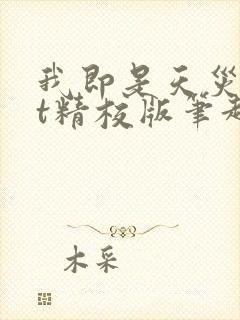 我即是天災
t精校版筆趣
木采